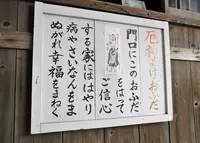 厄利つけおふだ
門口にこのおふだ
をはって
ご信心
する家にははやり
病やさいなんをよ
ぬがれ幸福をまねく